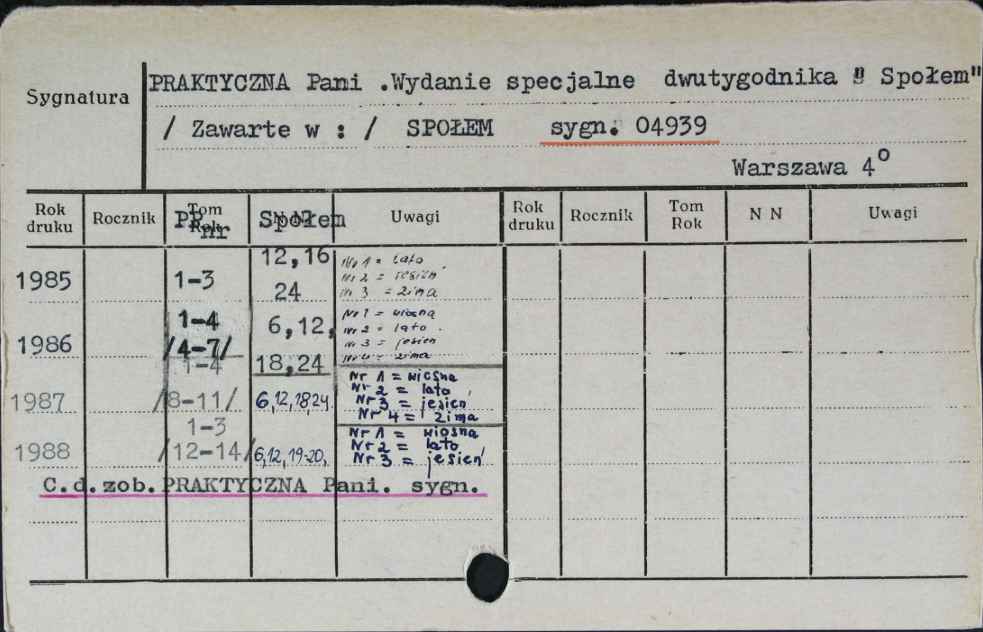 PRAKTYCZNA Pani .Wydanie specjalne dwutygodnika " Społem"
Sygnatura
/ Zawarte w : / SPOŁEM sygn. 04939
Warszawa 4°
Rok druku Rocznik Tom Rok PP nr N N Społem Uwagi Rok druku Rocznik Tom Rok N N Uwagi
12,16 Nr 1 = lato
1985 1-3 Nr 2 = jesień
24 Nr 3 = zima
1-4 6,12, Nr 1 = wiosna
Nr 2 = lato .
1986 /4-7/ Nr 3 = jesień
1-4 18,24 Nr 4 = zima
Nr 1 = wiosna
Nr 2 = lato ,
1987 /8-11/ 6,12,18,24. Nr 3 = jesien
Nr 4 = zima
1-3 Nr 1 = wiosna
Nr 2 = lato
1988 /12-14/ 6,12,19-20, Nr 3 = jesień
C.d.zob.PRAKTYCZNA Pani. sygn.